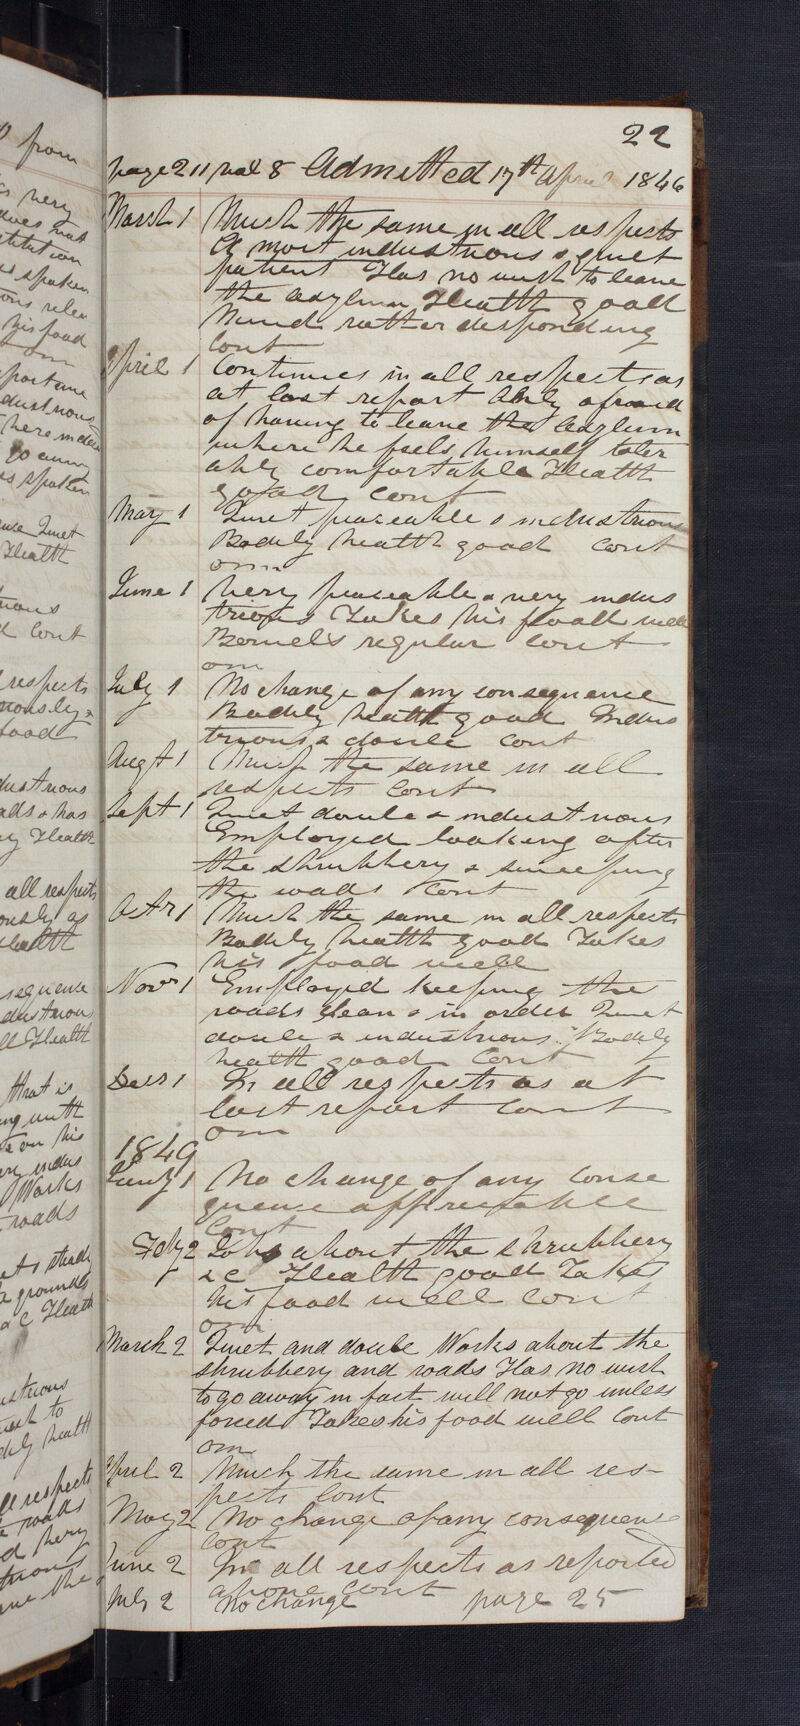 22
page 211 vol 8 Admitted 17th April 1846
March 1 Much the same in all respects
A most industrious & quiet
patient Has no wish to leave
the asylum Health good
Mind rather desponding
Cont
April 1 Continues in all respects as
at last report Only afraid
of having to leave the Asylum
where he feels himself toler
ably comfortable Health
good cont
May 1 Quiet peaceable & industrious
Bodily health good cont
om
June 1 Very peaceable & very indus
trious Takes his food well
Bowels regular Cont
om
July 1 No change of any consequence
Bodily health good Indus
trious & docile cont
Augt 1 Much the same in all
respects Cont
Sept 1 Quiet docile & industrious
Employed looking after
the shrubbery & sweeping
the roads Cont
Octr 1 Much the same in all respects
Bodily health good Takes
his food well
Novr 1 Employed keeping the
roads clean & in order Quiet
docile & industrious Bodily
health good Cont
Decr 1 In all respects as at
last report Cont
om
1849
Jany 1 No change of any conse
quence appreciable
Cont
Feby 2 Jobs about the shrubbery
&c Health good Takes
his food well Cont
om
March 2 Quiet and docile Works about the
shrubbery and roads Has no wish
to go away in fact will not go unless
forced Takes his food well Cont
om
April 2 Much the same in all res-
pects Cont
May 2 No change of any consequence
Cont
June 2 In all respects as reported
above cont
July 2 No change page 25
from
very
does not
stitution
spoken
his food
dustrious
go away
spoken
Quiet
Health
Cont
respects
food
dustrious
& has
Health
all respects
Health
sequence
dustrious
Health
that is
with
on his
indus
Works
roads
grounds
&c Health
to
health
respects
roads
the